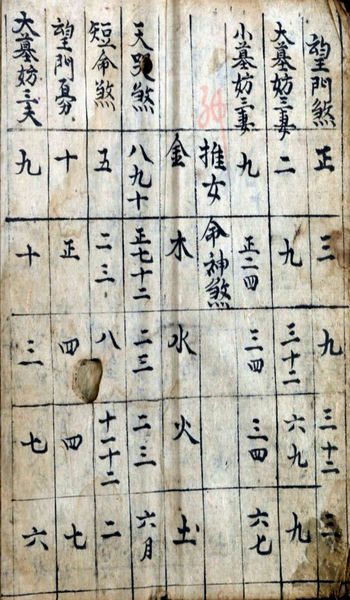 望門煞 正 三 九 三十二
大墓妨三妻 二 九 三十二 六九 九
小墓妨三妻 九 正二四 三四 三四 六七
推女命神煞
金 木 水 火 土
天 煞 八九十 正七十二 二三 二三 六月
短命煞 五 二三 八 十一十二 二
望門 十 正 四 四 七
大墓妨三夫 九 十 三 七 六